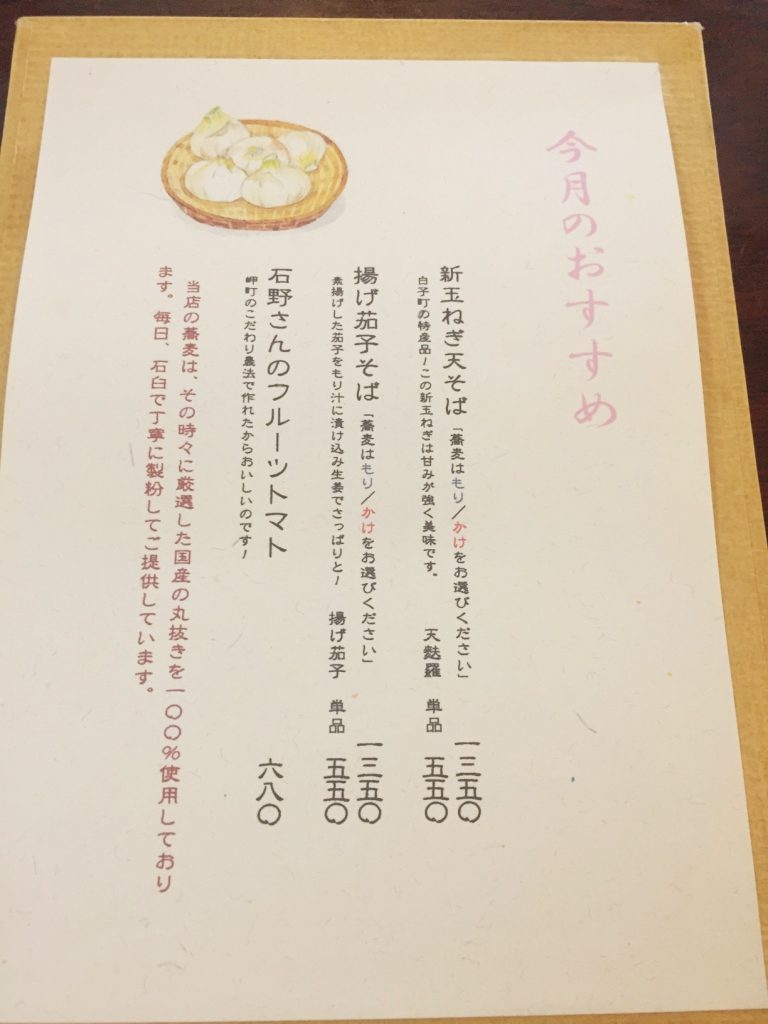 今月のおすすめ
新玉ねぎ天そば「蕎麦はもり/かけをお選びください」 一三五〇
白子町の特産品!この新玉ねぎは甘みが強く美味です。 天麩羅 単品 五五〇
揚げ茄子そば「蕎麦はもり/かけをお選びください」 一三五〇
素揚げした茄子をもり汁に漬け込み生姜でさっぱりと! 揚げ茄子 単品 五五〇
石野さんのフルーツトマト 六八〇
岬町のこだわり農法で作れたからおいしいのです!
当店の蕎麦は、その時々に厳選した国産の丸抜きを一〇〇%使用しており
ます。毎日、石臼で丁寧に製粉してご提供しています。